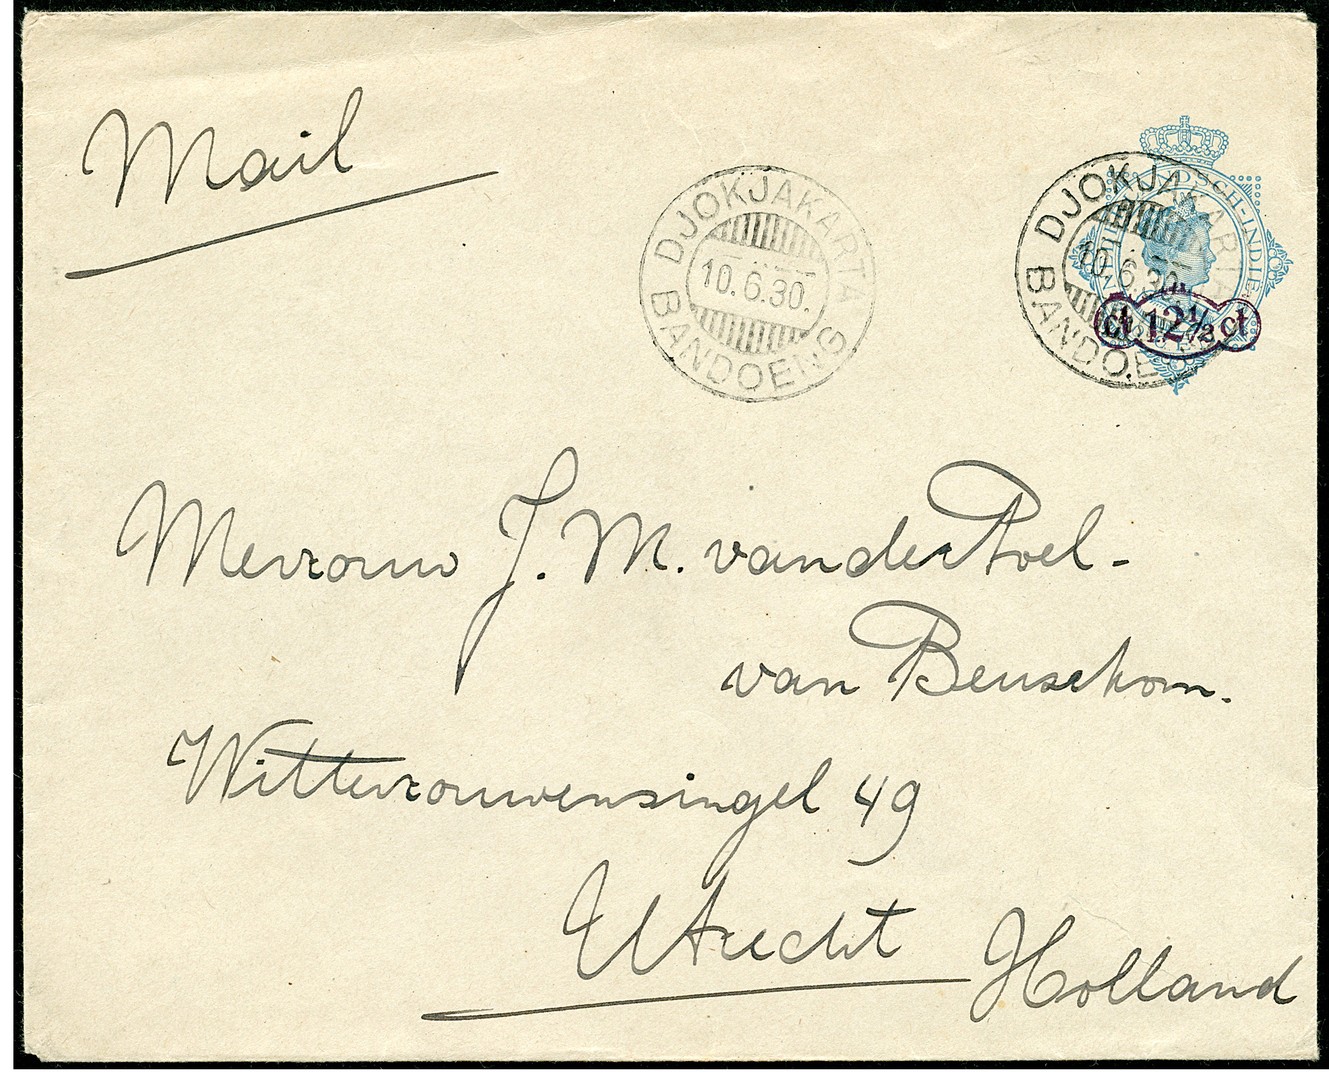 Mail
DJOKJAKARTA
10.6.30.
BANDOENG
DJOKJAKARTA
10.6.30
BANDOE
SCH-INDIE
ct 12½ ct
Mevrouw J. M. van der Poel-
van Beuschom.
Wittevrouwensingel 49
Utrecht Holland